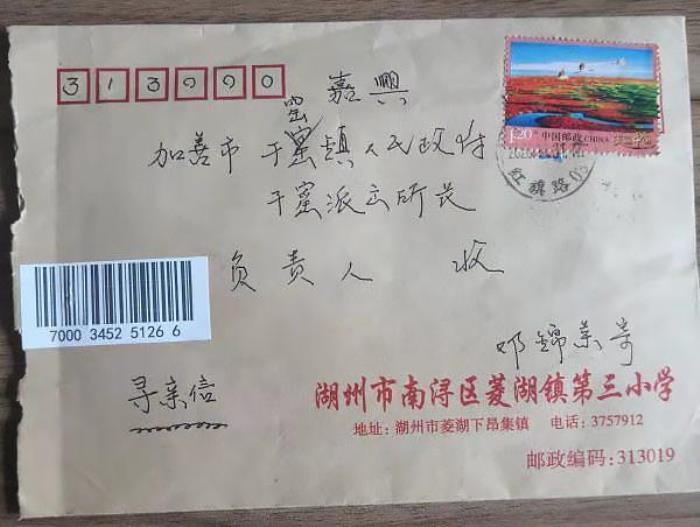 313000
嘉興
窑
加善市 干窰镇人民政府
干窑派出所长
负责人 收
1.20元
中国邮政 CHINA
红旗路
7000 3452 5126 6
邓锦荣寄
寻亲信
湖州市南浔区菱湖镇第三小学
地址: 湖州市菱湖下昂集镇 电话: 3757912
邮政编码: 313019